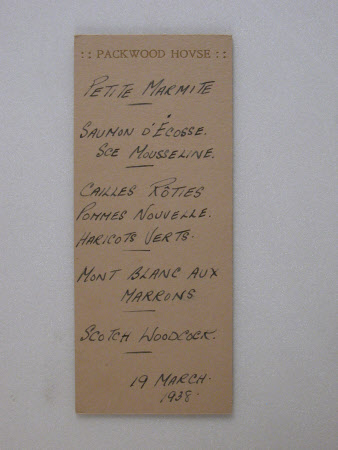 :: PACKWOOD HOVSE ::
PETITE MARMITE
SAUMON D'ÉCOSSE.
SCE MOUSSELINE.
CAILLES RÔTIES
POMMES NOUVELLE.
HARICOTS VERTS.
MONT BLANC AUX
MARRONS
SCOTCH WOODCOCK.
19 MARCH.
1938.